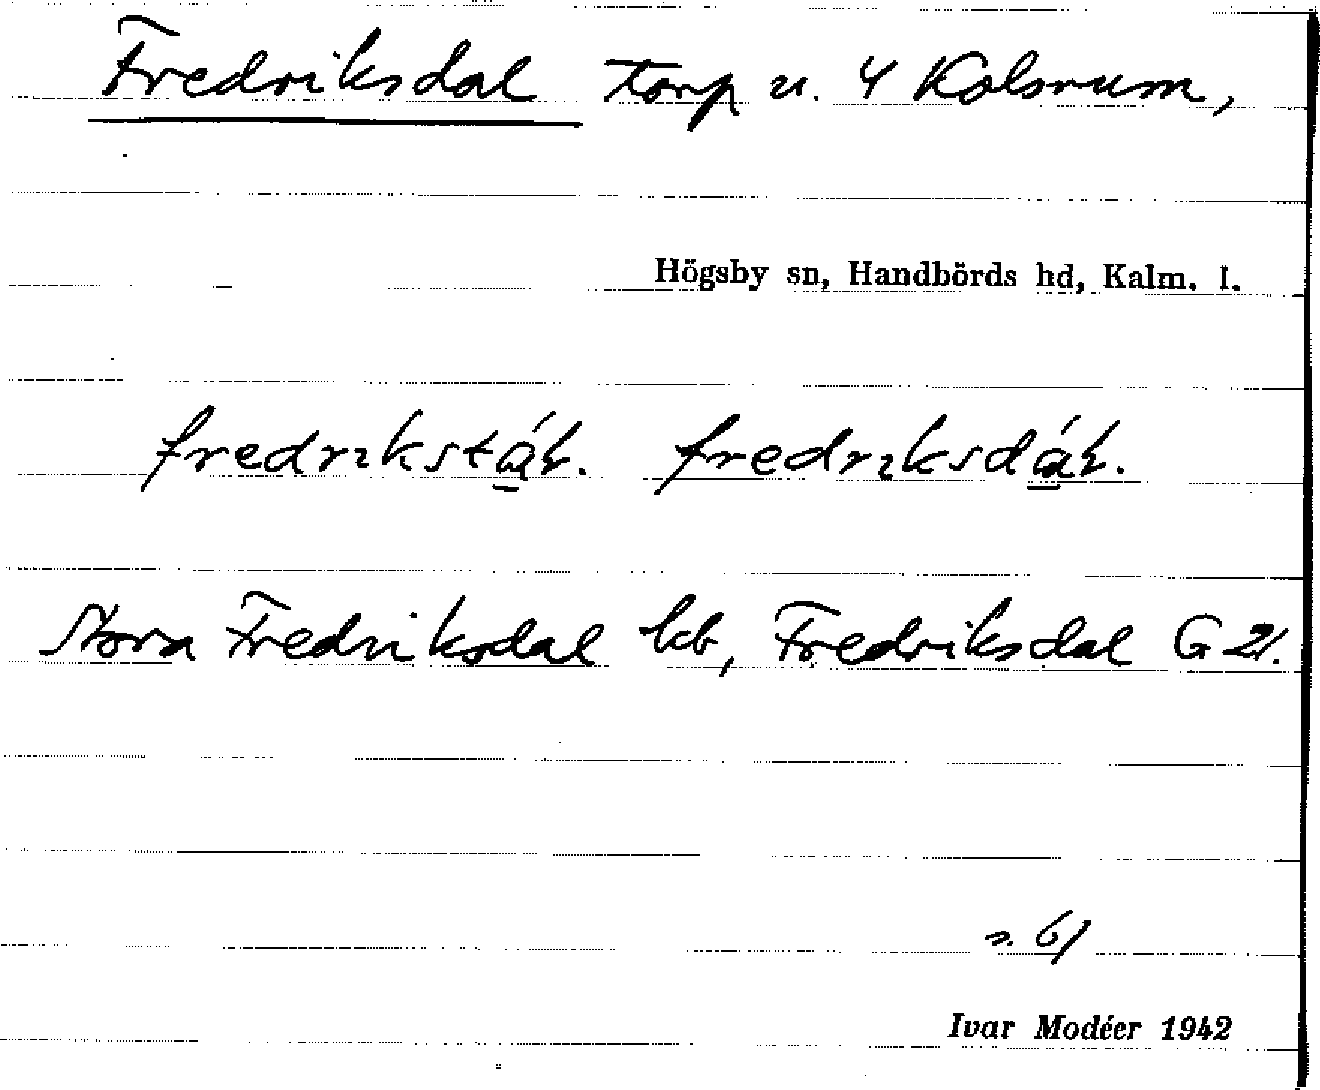 Fredriksdal torp u. 4 Kolsrum,
Högsby sn, Handbörds hd, Kalm. l.
fredrıkstá̱l. fredrıksdá̱l.
Stora Fredriksdal kb, Fredriksdal G 21.
s. 61
Ivar Modéer 1942